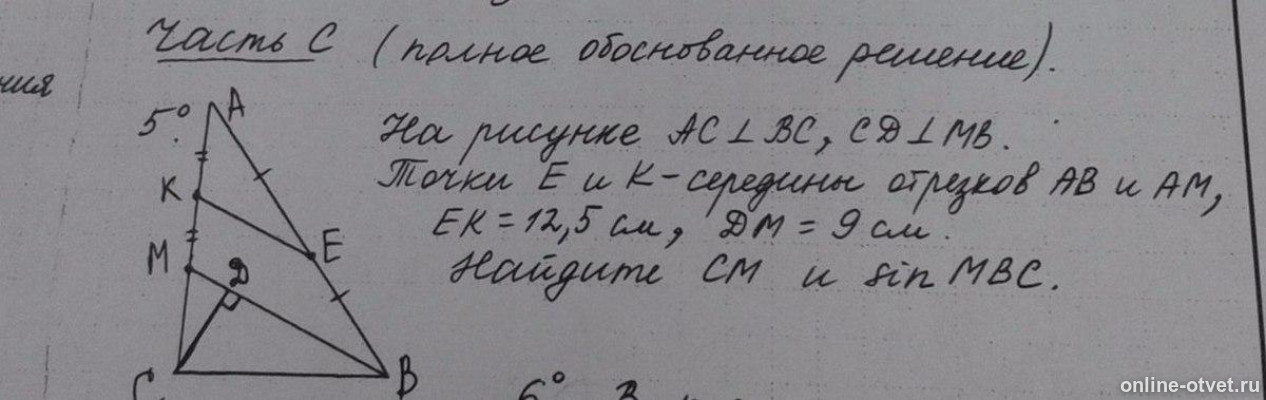 ния
Часть С (полное обоснованное решение).
5°.
A
K
M
Д
E
C
B
На рисунке AC⊥BC, CД⊥MB.
Точки E и K-середины отрезков AB и AM,
EK=12,5 см, ДM=9 см.
Найдите CM и sin MBC.
6°
online-otvet.ru